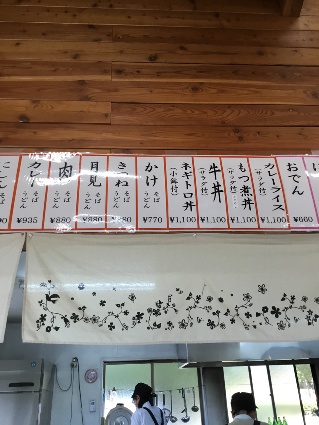 おでん
¥660
カレーライス
(サラダ付)
¥1,100
もつ煮丼
(サラダ付)
¥1,100
牛丼
(サラダ付)
¥1,100
ネギトロ丼
(小鉢付)
¥1,100
かけ
そば
うどん
¥770
きつね
そば
うどん
月見
そば
うどん
¥880
肉
そば
うどん
¥880
カレー
そば
うどん
¥935